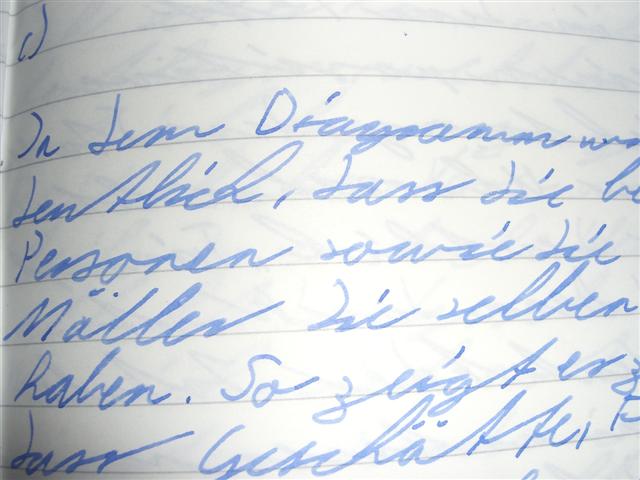 c)
In dem Diagramm
deutlich, dass die
Personen sowie die
die selben
haben. So zeigt
dass Geschäfte,